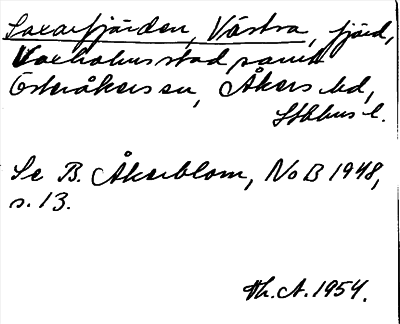 Saxarfjärden, Västra, fjärd,
Vaxholms stad samt
Österåkers sn, Åkers hd,
Sthlms l.
Se B. Åkerblom, NoB 1948,
s. 13.
Th. A. 1954.